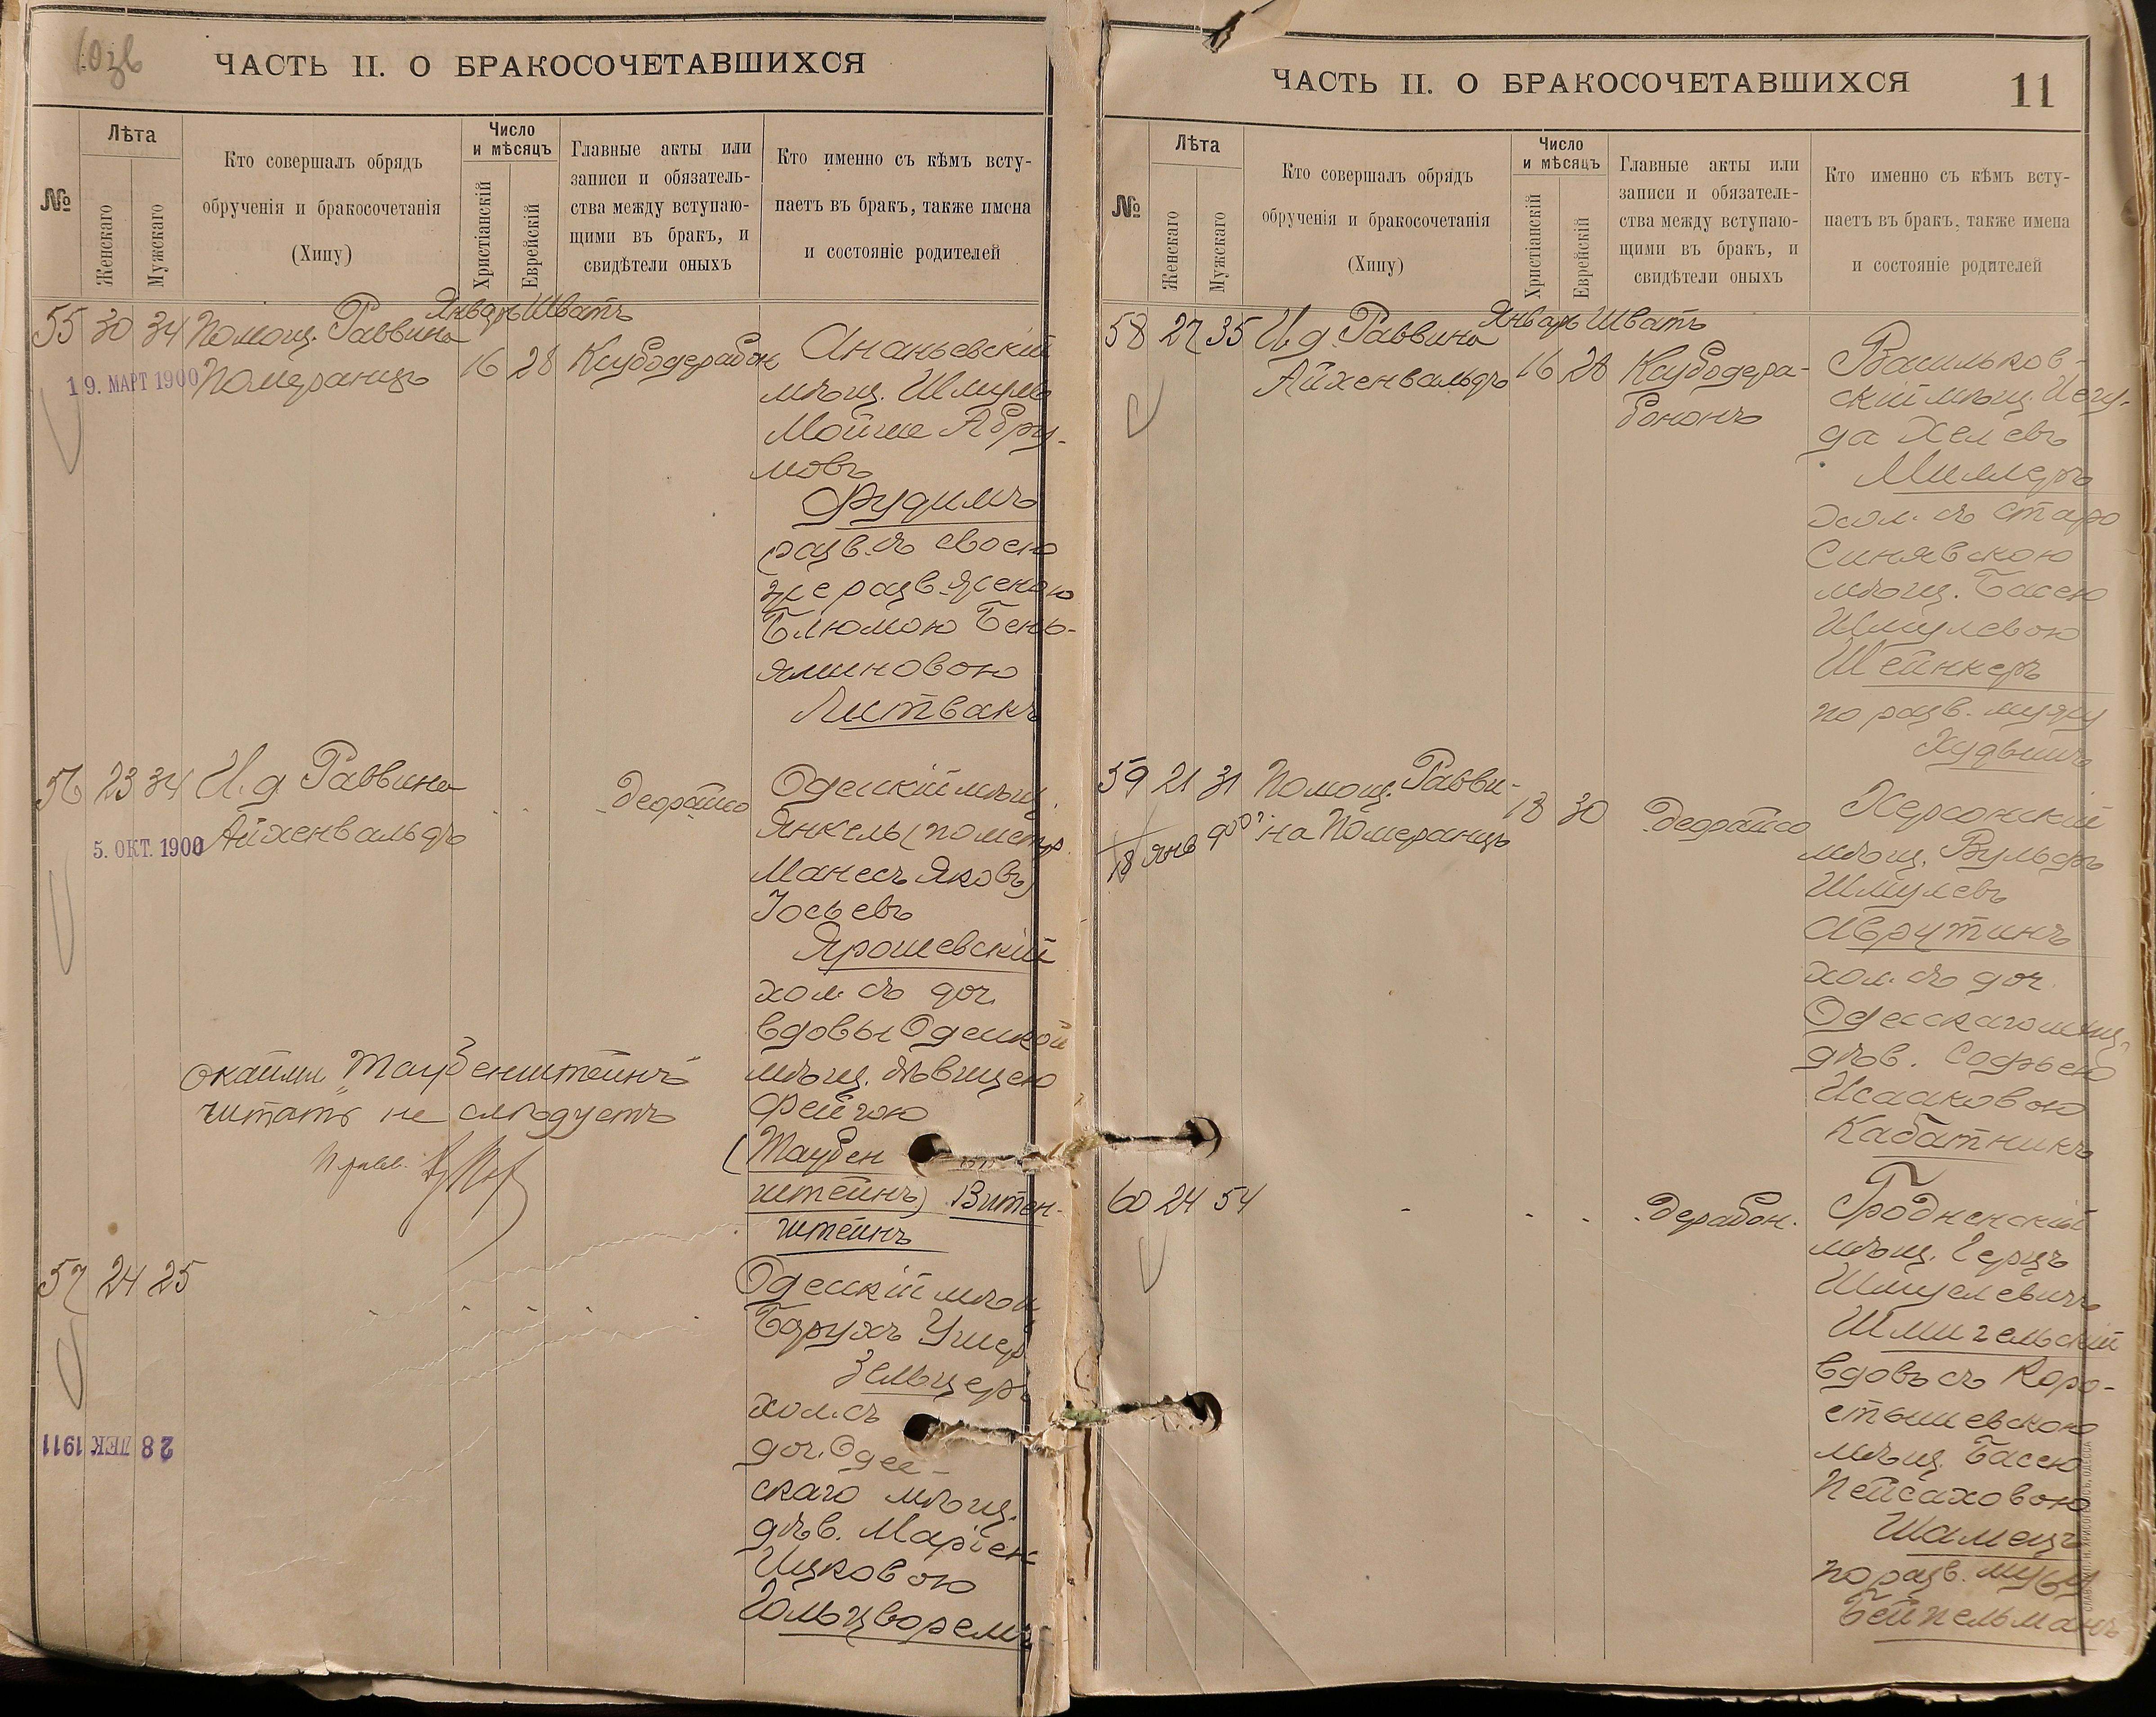 ЧАСТЬ II. О БРАКОСОЧЕТАВШИХСЯ
№
Лѣта
Женскаго
Мужскаго
Кто совершалъ обрядъ
обрученія и бракосочетанія
(Хипу)
Число
и мѣсяцъ
Христіанскій
Еврейскій
Главные акты или
записи и обязатель-
ства между вступаю-
щими въ бракъ, и
свидѣтели оныхъ
Кто именно съ кѣмъ всту-
паетъ въ бракъ, также имена
и состояніе родителей
55 30 34 Помощ. Раввина
Померанцъ
19. МАРТ 1900
Январь Шватъ
16 28
Ананьевскій
мѣщ. Шмуль
Мойше Абру-
мовъ
Фудимъ
разв. съ своею
же разв. женою
Блюмою Бень-
яминовою
Литвакъ
56 23 34 И. д. Раввина
Айхенвальдъ
5. ОКТ. 1900
Деорайсо
Одесскій мѣщ.
Янкель (по метр.
Манесъ Яковъ)
Іосьевъ
Ярошевскій
хол. съ доч.
вдовы Одесской
мѣщ. дѣвицею
Фейгою
(Таубен
штейнъ) Витен-
штейнъ
"Таубенштейнъ"
читать не слѣдуетъ
57 24 25
Одесскій мѣщ
Борухъ Ушер
Зельцеръ
хол. съ
доч. Одес-
скаго мѣщ.
дѣв. Маріей
Ицковою
Гольцворемъ
28 ДЕК 1911
ЧАСТЬ II. О БРАКОСОЧЕТАВШИХСЯ
11
№
Лѣта
Женскаго
Мужскаго
Кто совершалъ обрядъ
обрученія и бракосочетанія
(Хипу)
Число
и мѣсяцъ
Христіанскій
Еврейскій
Главные акты или
записи и обязатель-
ства между вступаю-
щими въ бракъ, и
свидѣтели оныхъ
Кто именно съ кѣмъ всту-
паетъ въ бракъ, также имена
и состояніе родителей
58 27 35 И. д. Раввина
Айхенвальдъ
Январь Шватъ
16 28
Ксубодера-
бононъ
Васильков-
скій мѣщ. Іегу-
да Хелевъ
Миллеръ
хол. съ старо
Синявскою
мѣщ. Басею
Шмулевою
Шейнкеръ
по разв. мужу
59 21 31 Помощ. Равви-
на Померанцъ
18 30
Деорайсо
Херсонскій
мѣщ. Вульфъ
Шмулевъ
Аврутинъ
хол. съ доч.
Одесскаго мѣщ.
дѣв. Софьею
Исааковою
Кабатникъ
60 24 54
Дерабон.
Гродненскій
мѣщ. Герцъ
Шмуелевичъ
Шмигельскій
вдовъ съ Коро-
стышевскою
мѣщ. Басею
Пейсаховою
Шамецъ
по разв. мужу
Бейпельманъ